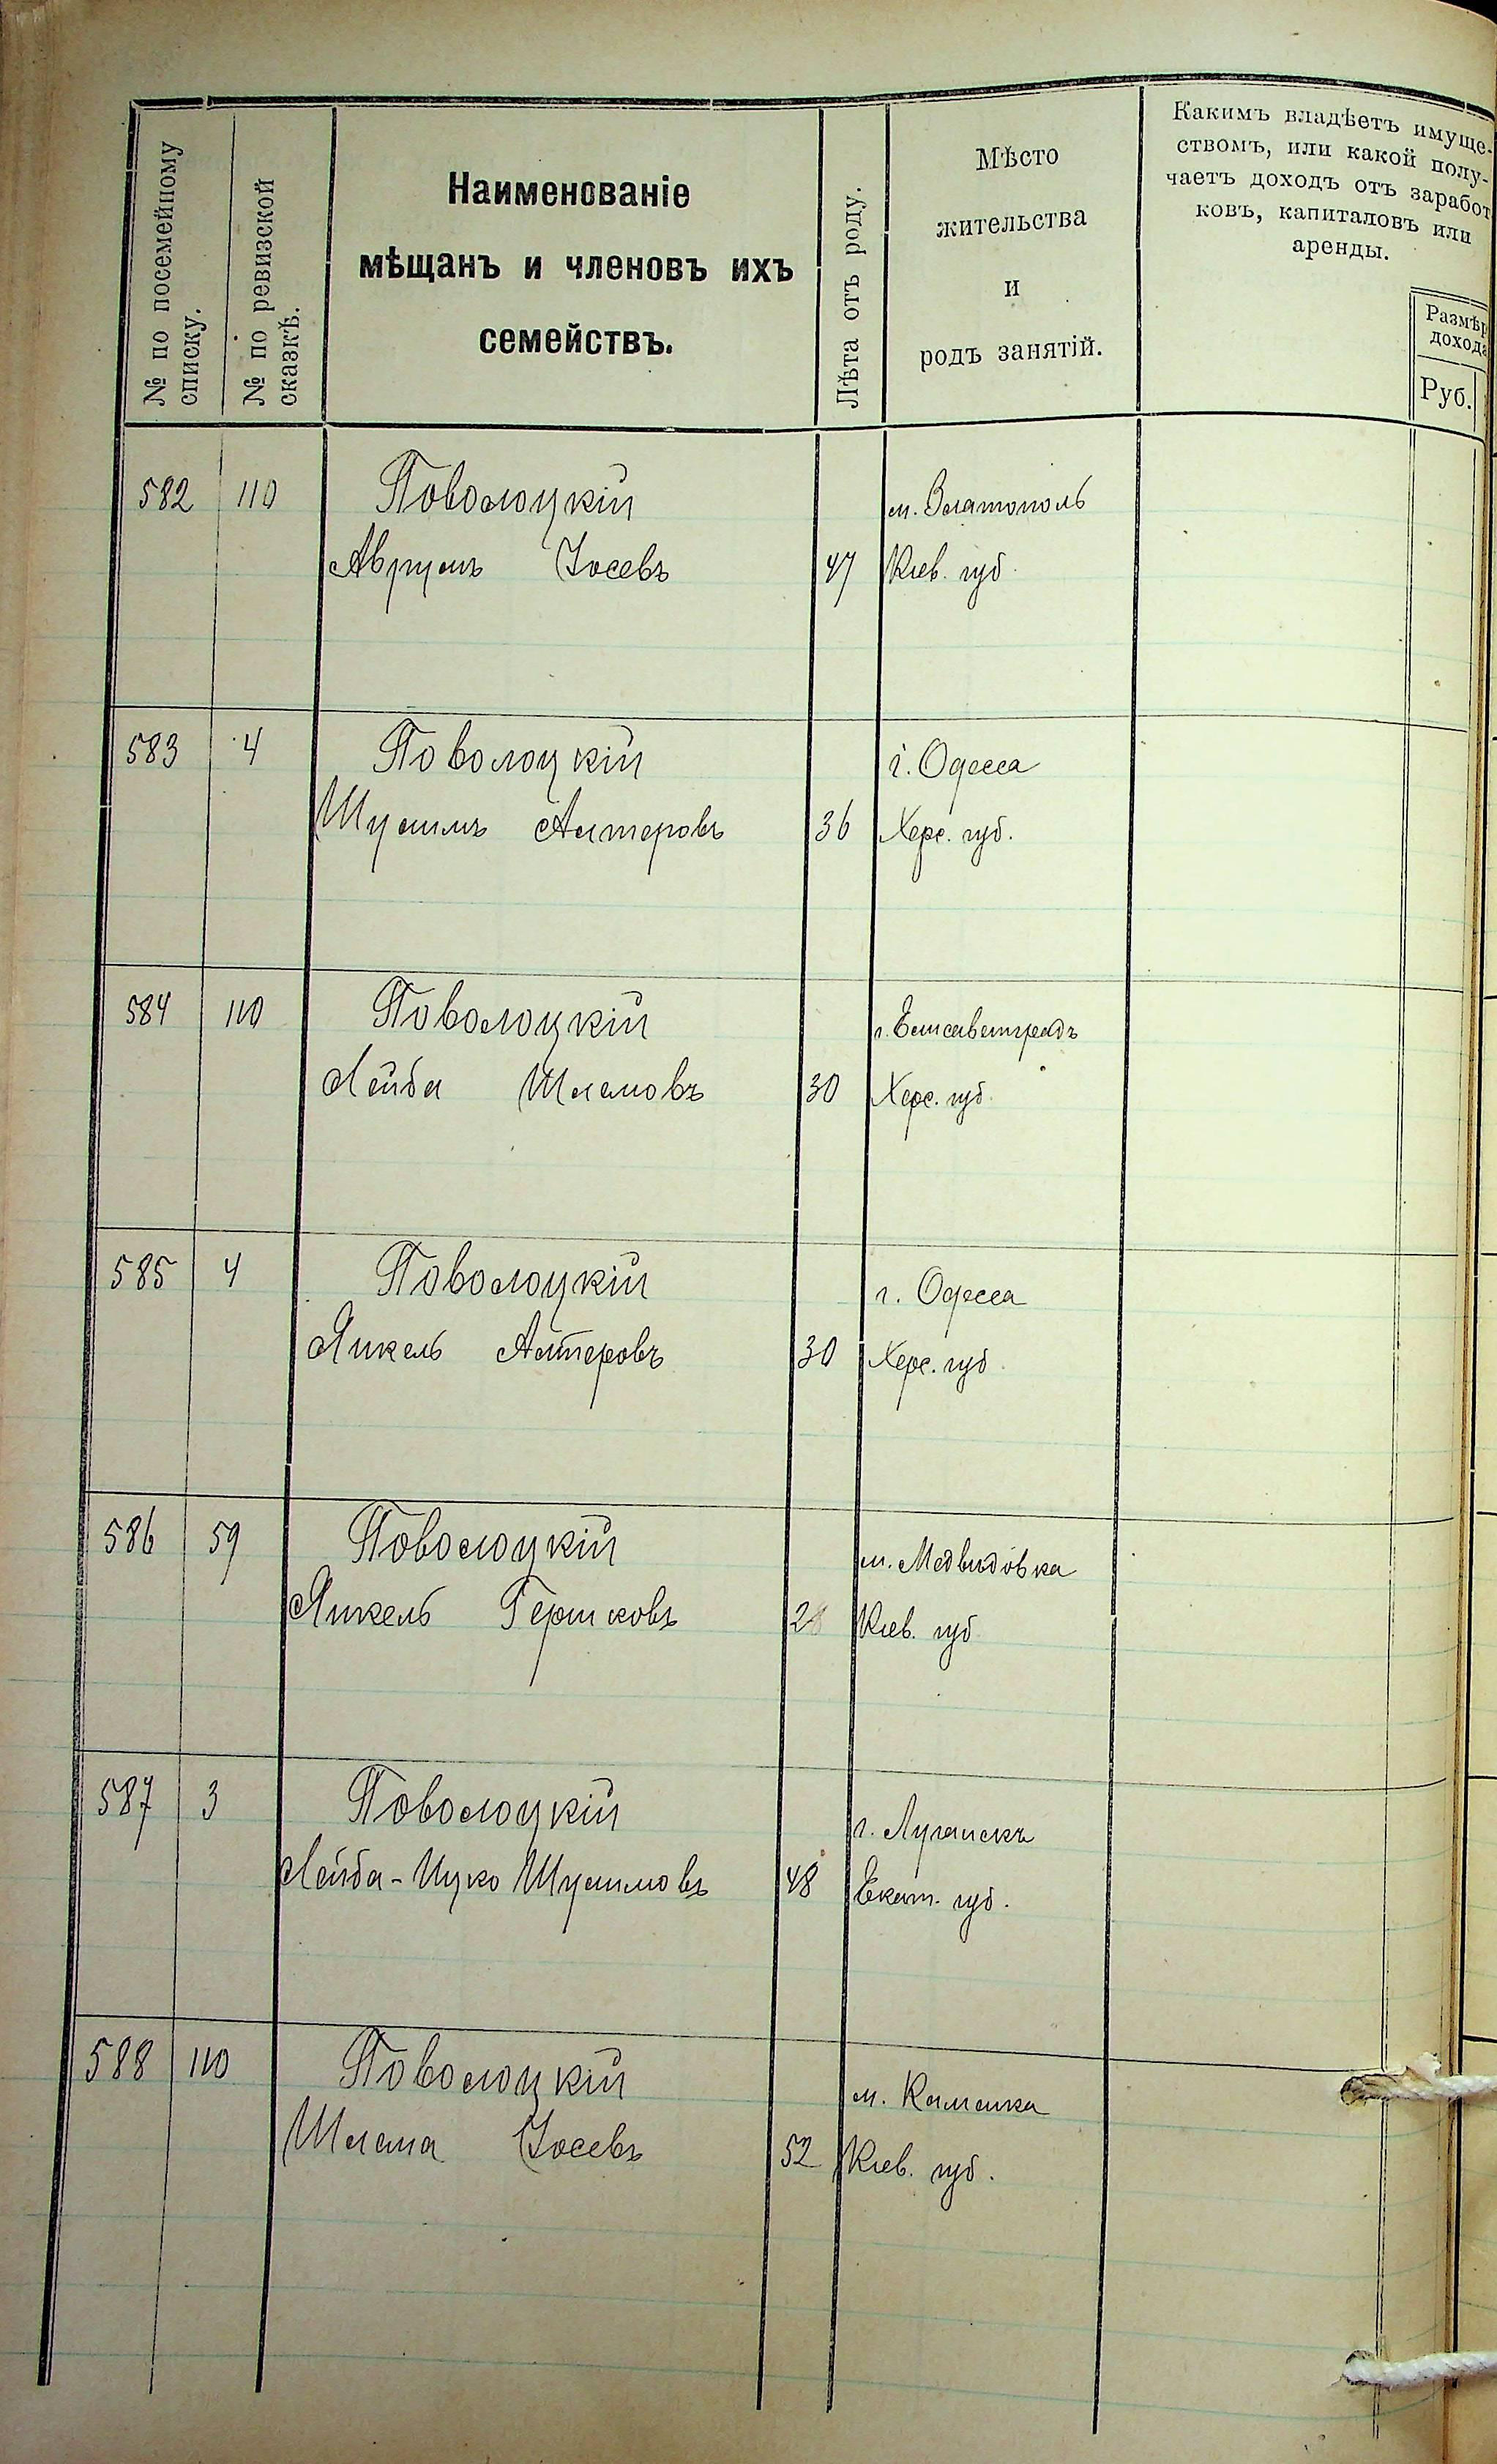 № по посемейному
списку.
№ по ревизской
сказкѣ.
Наименованіе
мѣщанъ и членовъ ихъ
семействъ.
Лѣта отъ роду.
Мѣсто
жительства
и
родъ занятій.
Какимъ владѣетъ имуще-
ствомъ, или какой полу-
чаетъ доходъ отъ заработ
ковъ, капиталовъ или
аренды.
Размѣр
дохода
Руб.
582 110 Поволоцкій м. Златополь
Аврумъ Іосевъ 47 Кіев. губ.
583 4 Поволоцкій г. Одесса
Шулимъ Алтеровъ 36 Херс. губ.
584 110 Поволоцкій г. Елисаветградъ
Лейба Шлемовъ 30 Херс. губ.
585 4 Поволоцкій г. Одесса
Янкель Алтеровъ 30 Херс. губ.
586 59 Поволоцкій м. Медвѣдовка
Янкель Гершковъ 28 Кіев. губ
587 3 Поволоцкій г. Луганскъ
Лейба-Ицко Шулимовъ 48 Екат. губ.
588 110 Поволоцкій м. Каменка
Шлема Іосевъ 52 Кіев. губ.